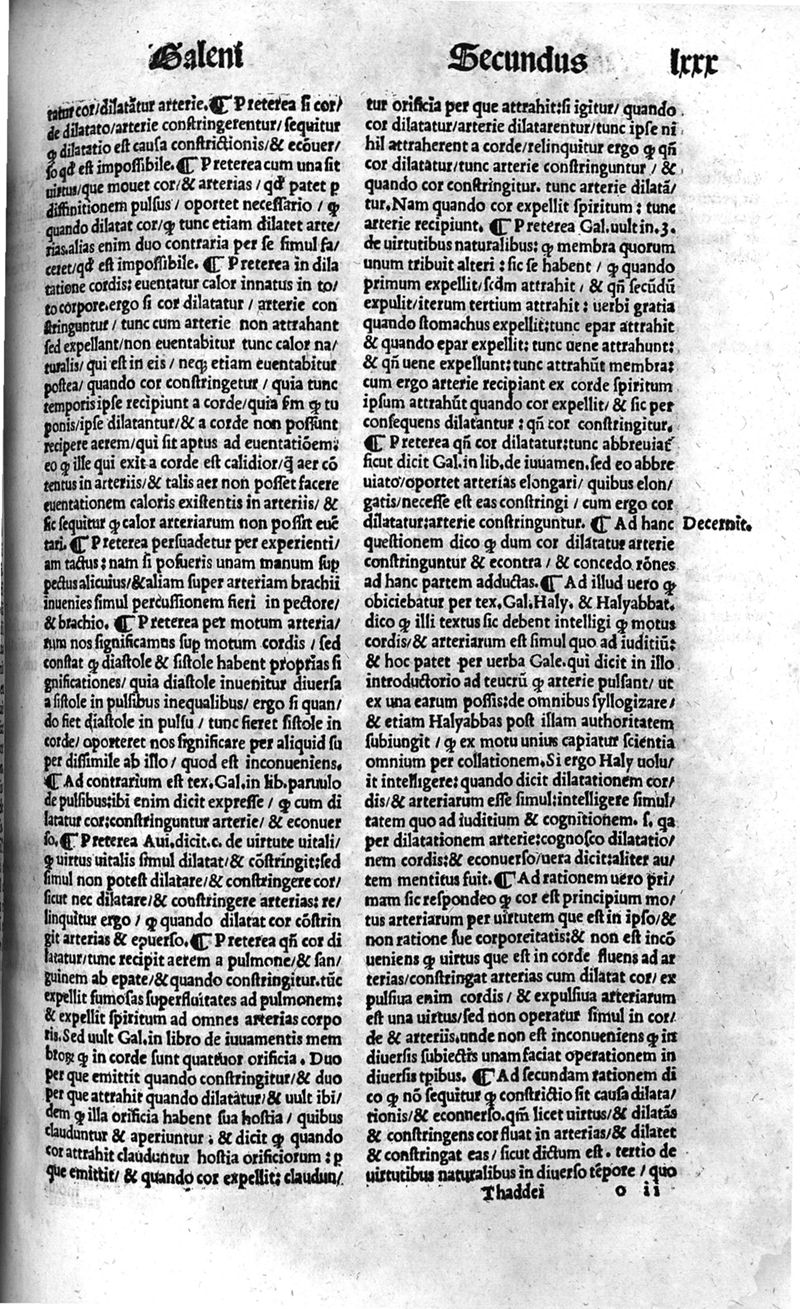 Galeni
tatur cor/dilatãtur arterie. ¶ Preterea si cor/
de dilatato/arterie constringerentur/sequitur
ꝙ dilatatio est causa constrictionis/& ecõuer/
so qd̃ est impossibile. ¶ Preterea cum una sit
uirtus/que mouet cor/& arterias / qd̃ patet p̱
diffinitionem pulsus / oportet necessario / ꝙ
quando dilatat cor/ꝙ tunc etiam dilatet arte/
rias.alias enim duo contraria per se simul fa/
ceret/qd̃ est impossibile. ¶ Preterea in dila
tatione cordis: euentatur calor innatus in to/
to corpore.ergo si cor dilatatur / arterie con
stringuntur / tunc cum arterie non attrahant
sed expellant/non euentabitur tunc calor na/
turalis / qui est in eis / neqꝫ etiam euentabitur
postea/ quando cor constringetur / quia tunc
temporis ipse recipiunt a corde/quia s̃m ꝙ tu
ponis/ipse dilatantur/& a corde non possunt
recipere aerem/qui sit aptus ad euentatiõem:
eo ꝙ ille qui exit a corde est calidior/q̃ aer cõ
tentus in arteriis/& talis aer non posset facere
euentationem caloris existentis in arteriis/ &
sic sequitur ꝙ calor arteriarum non possit euẽ
tari. ¶ Preterea persuadetur per experienti/
am tactus: nam si posueris unam manum sup̱
pectus alicuius/&aliam super arteriam brachii
inuenies simul percussionem fieri in pectore/
& brachio. ¶ Preterea per motum arteria/
rum nos significamus sup̱ motum cordis / sed
constat ꝙ diastole & sistole habent proprias si
gnificationes/ quia diastole inuenitur diuersa
a sistole in pulsibus inequalibus/ ergo si quan/
do fiet diastole in pulsu / tunc fieret sistole in
corde/ oporteret nos significare per aliquid su
per dissimile ab illo / quod est inconueniens.
¶ Ad contrarium est tex.Gal.in lib.paruulo
de pulsibus:ibi enim dicit expresse / ꝙ cum di
latatur cor:constringuntur arterie/ & econuer
so. ¶ Preterea Aui.dicit.c. de uirtute uitali/
ꝙ uirtus uitalis simul dilatat/& cõstringit:sed
simul non potest dilatare/& constringere cor/
sicut nec dilatare/& constringere arterias: re/
linquitur ergo / ꝙ quando dilatat cor cõstrin
git arterias & epuerso. ¶ Preterea qñ cor di
latatur/tunc recipit aerem a pulmone/& san/
guinem ab epate/&quando constringitur.tũc
expellit fumosas superfluitates ad pulmonem:
& expellit spiritum ad omnes arterias corpo
ris.Sed uult Gal.in libro de iuuamentis mem
broꝝ ꝙ in corde sunt quattuor orificia . Duo
per que emittit quando constringitur/& duo
per que attrahit quando dilatãtur/& uult ibi/
dem ꝙ illa orificia habent sua hostia / quibus
clauduntur & aperiuntur : & dicit ꝙ quando
cor attrahit clauduntur hostia orificiorum : p̱
que emittit/ & quando cor expellit: claudun/

Secundus lxxx
tur orificia per que attrahit:si igitur/ quando
cor dilatatur/arterie dilatarentur/tunc ipse ni
hil attraherent a corde/relinquitur ergo ꝙ qñ
cor dilatatur/tunc arterie constringuntur / &
quando cor constringitur. tunc arterie dilatã/
tur.Nam quando cor expellit spiritum : tunc
arterie recipiunt. ¶ Preterea Gal.uult in.3.
de uirtutibus naturalibus: ꝙ membra quorum
unum tribuit alteri : sic se habent / ꝙ quando
primum expellit/scd̃m attrahit / & qñ secũdũ
expulit/iterum tertium attrahit : uerbi gratia
quando stomachus expellit:tunc epar attrahit
& quando epar expellit: tunc uene attrahunt:
& qñ uene expellunt: tunc attrahũt membra:
cum ergo arterie recipiant ex corde spiritum
ipsum attrahũt quando cor expellit/ & sic per
consequens dilatantur : qñ cor constringitur.
¶ Preterea qñ cor dilatatur:tunc abbreuiat̃
sicut dicit Gal.in lib.de iuuamen.sed eo abbre
uiato/oportet arterias elongari/ quibus elon/
gatis/necesse est eas constringi / cum ergo cor
dilatatur:arterie constringuntur. ¶ Ad hanc
Decernit.
questionem dico ꝙ dum cor dilatatur arterie
constringuntur & econtra / & concedo rõnes
ad hanc partem adductas. ¶ Ad illud uero ꝙ
obiciebatur per tex.Gal.Haly. & Halyabbat.
dico ꝙ illi textus sic debent intelligi ꝙ motus
cordis/& arteriarum est simul quo ad iuditiũ:
& hoc patet per uerba Gale.qui dicit in illo
introductorio ad teucrũ ꝙ arterie pulsant/ ut
ex una earum possis:de omnibus syllogizare/
& etiam Halyabbas post illam authoritatem
subiungit / ꝙ ex motu unius capiatur scientia
omnium per collationem.Si ergo Haly uolu/
it intelligere: quando dicit dilatationem cor/
dis/& arteriarum esse simul:intelligere simul/
tatem quo ad iuditium & cognitionem. s. qa
per dilatationem arterie:cognosco dilatatio/
nem cordis:& econuerso/uera dicit:aliter au/
tem mentitus fuit. ¶ Ad rationem uero pri/
mam sic respondeo ꝙ cor est principium mo/
tus arteriarum per uirtutem que est in ipso/&
non ratione sue corporeitatis:& non est incõ
ueniens ꝙ uirtus que est in corde fluens ad ar
terias/constringat arterias cum dilatat cor/ ex
pulsiua enim cordis / & expulsiua arteriarum
est una uirtus/sed non operatur simul in cor/
de & arteriis.unde non est inconueniens ꝙ in
diuersis subiectis unam faciat operationem in
diuersis tp̃ibus. ¶ Ad secundam rationem di
co ꝙ nõ sequitur ꝙ constrictio sit causa dilata/
tionis/& econuerso.qm̃ licet uirtus/& dilatãs
& constringens cor fluat in arterias/& dilatet
& constringat eas / sicut dictum est . tertio de
uirtutibus naturalibus in diuerso tẽpore / quo
Thaddei o ii